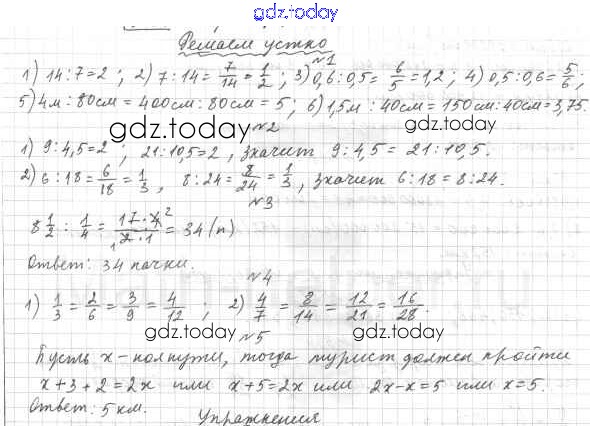 gdz.today
Решаем устно
№1
1) 14:7=2 ; 2) 7:14=7/14=1/2 ; 3) 0,6:0,5= 6/5 =1,2 ; 4) 0,5:0,6=5/6 ;
5) 4м : 80см = 400см : 80см = 5 ; 6) 1,5м : 40см = 150см : 40см = 3,75.
gdz.today
№2
1) 9:4,5=2 ; 21:10,5=2 , значит 9:4,5 = 21:10,5.
2) 6:18=6/18=1/3 , 8:24=8/24=1/3 , значит 6:18=8:24.
№3
8 1/2 : 1/4 = 17·4 2 / 1 2·1 = 34 (п)
gdz.today
Ответ: 34 пачки.
№4
1) 1/3 = 2/6 = 3/9 = 4/12 ; 2) 4/7 = 8/14 = 12/21 = 16/28.
gdz.today
gdz.today
№5
Пусть x - полпути, тогда турист должен пройти
x+3+2=2x или x+5=2x или 2x-x=5 или x=5.
Ответ: 5 км.
gdz.today
Упражнения